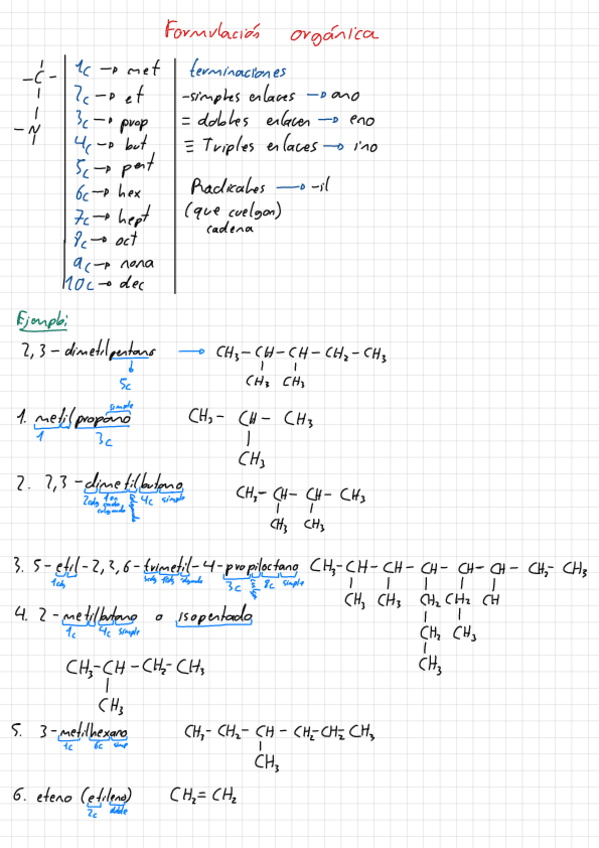 Formulación orgánica
-C-
-N
1c → met
2c → et
3c → prop
4c → but
5c → pent
6c → hex
7c → hept
8c → oct
9c → nona
10c → dec
terminaciones
-simples enlaces → ano
= dobles enlaces → eno
≡ Triples enlaces → ino
Radicales → -il
(que cuelgan)
cadena
Ejemplo:
2,3-dimetilpentano → CH3-CH-CH-CH2-CH3
CH3 CH3
5c
simple
1. metilpropano CH3-CH-CH3
1 3c
CH3
2. 2,3-dimetilbutano CH3-CH-CH-CH3
4c simple
CH3 CH3
3. 5-etil-2,3,6-trimetil-4-propiloctano CH3-CH-CH-CH-CH-CH-CH2-CH3
3c 8c simple
CH3 CH3 CH2 CH2 CH
4. 2-metilbutano o isopentado
1c 4c simple
CH2 CH3
CH3
CH3-CH-CH2-CH3
CH3
5. 3-metilhexano CH3-CH2-CH-CH2-CH2-CH3
1c 6c simp
CH3
6. eteno (etileno) CH2=CH2
2c doble